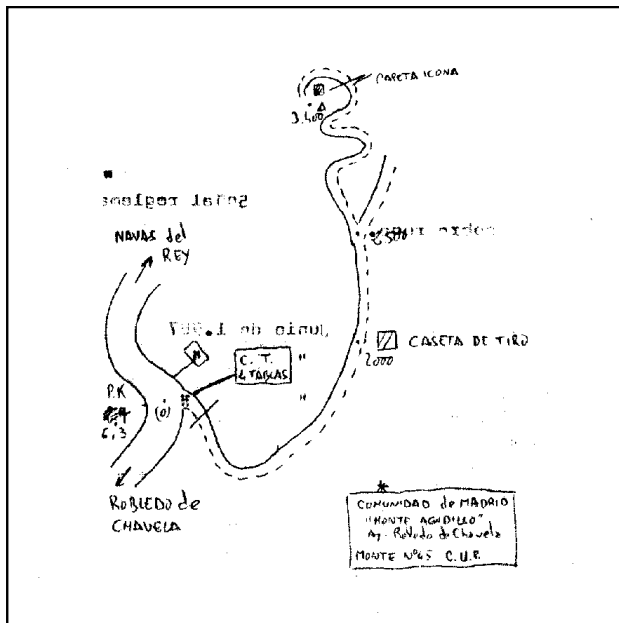 CASETA ICONA
3.400
Señal reglame
NAVAS del
REY
sobre
2500
Junio de 1.997
C. T. "
4 TABLAS
"
CASETA DE TIRO
2000
P.K
6,3
(0)
ROBLEDO de
CHAVELA
*
COMUNIDAD de MADRID
"MONTE AGUDILLO"
Ay. Robledo de Chavela
MONTE Nº 45 C.U.P.